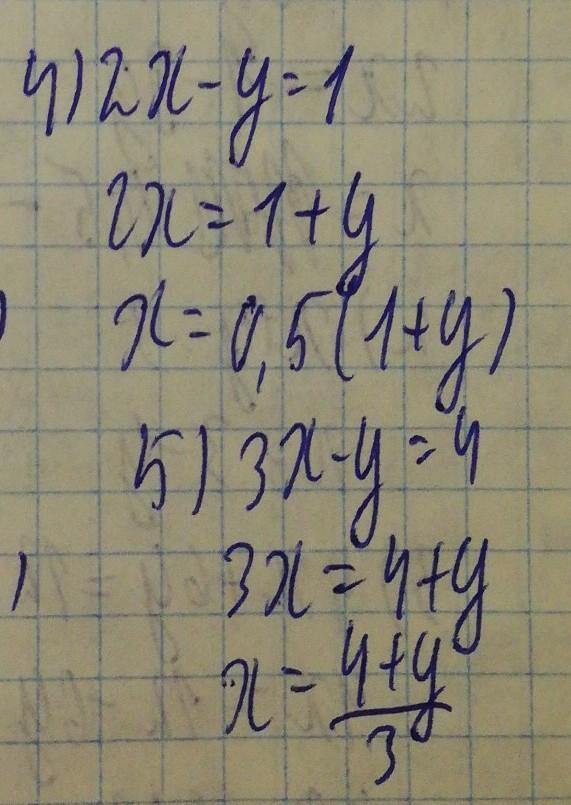 4) 2x - y = 1
2x = 1 + y
x = 0,5(1 + y)
5) 3x - y = 4
3x = 4 + y
x = \frac{4 + y}{3}